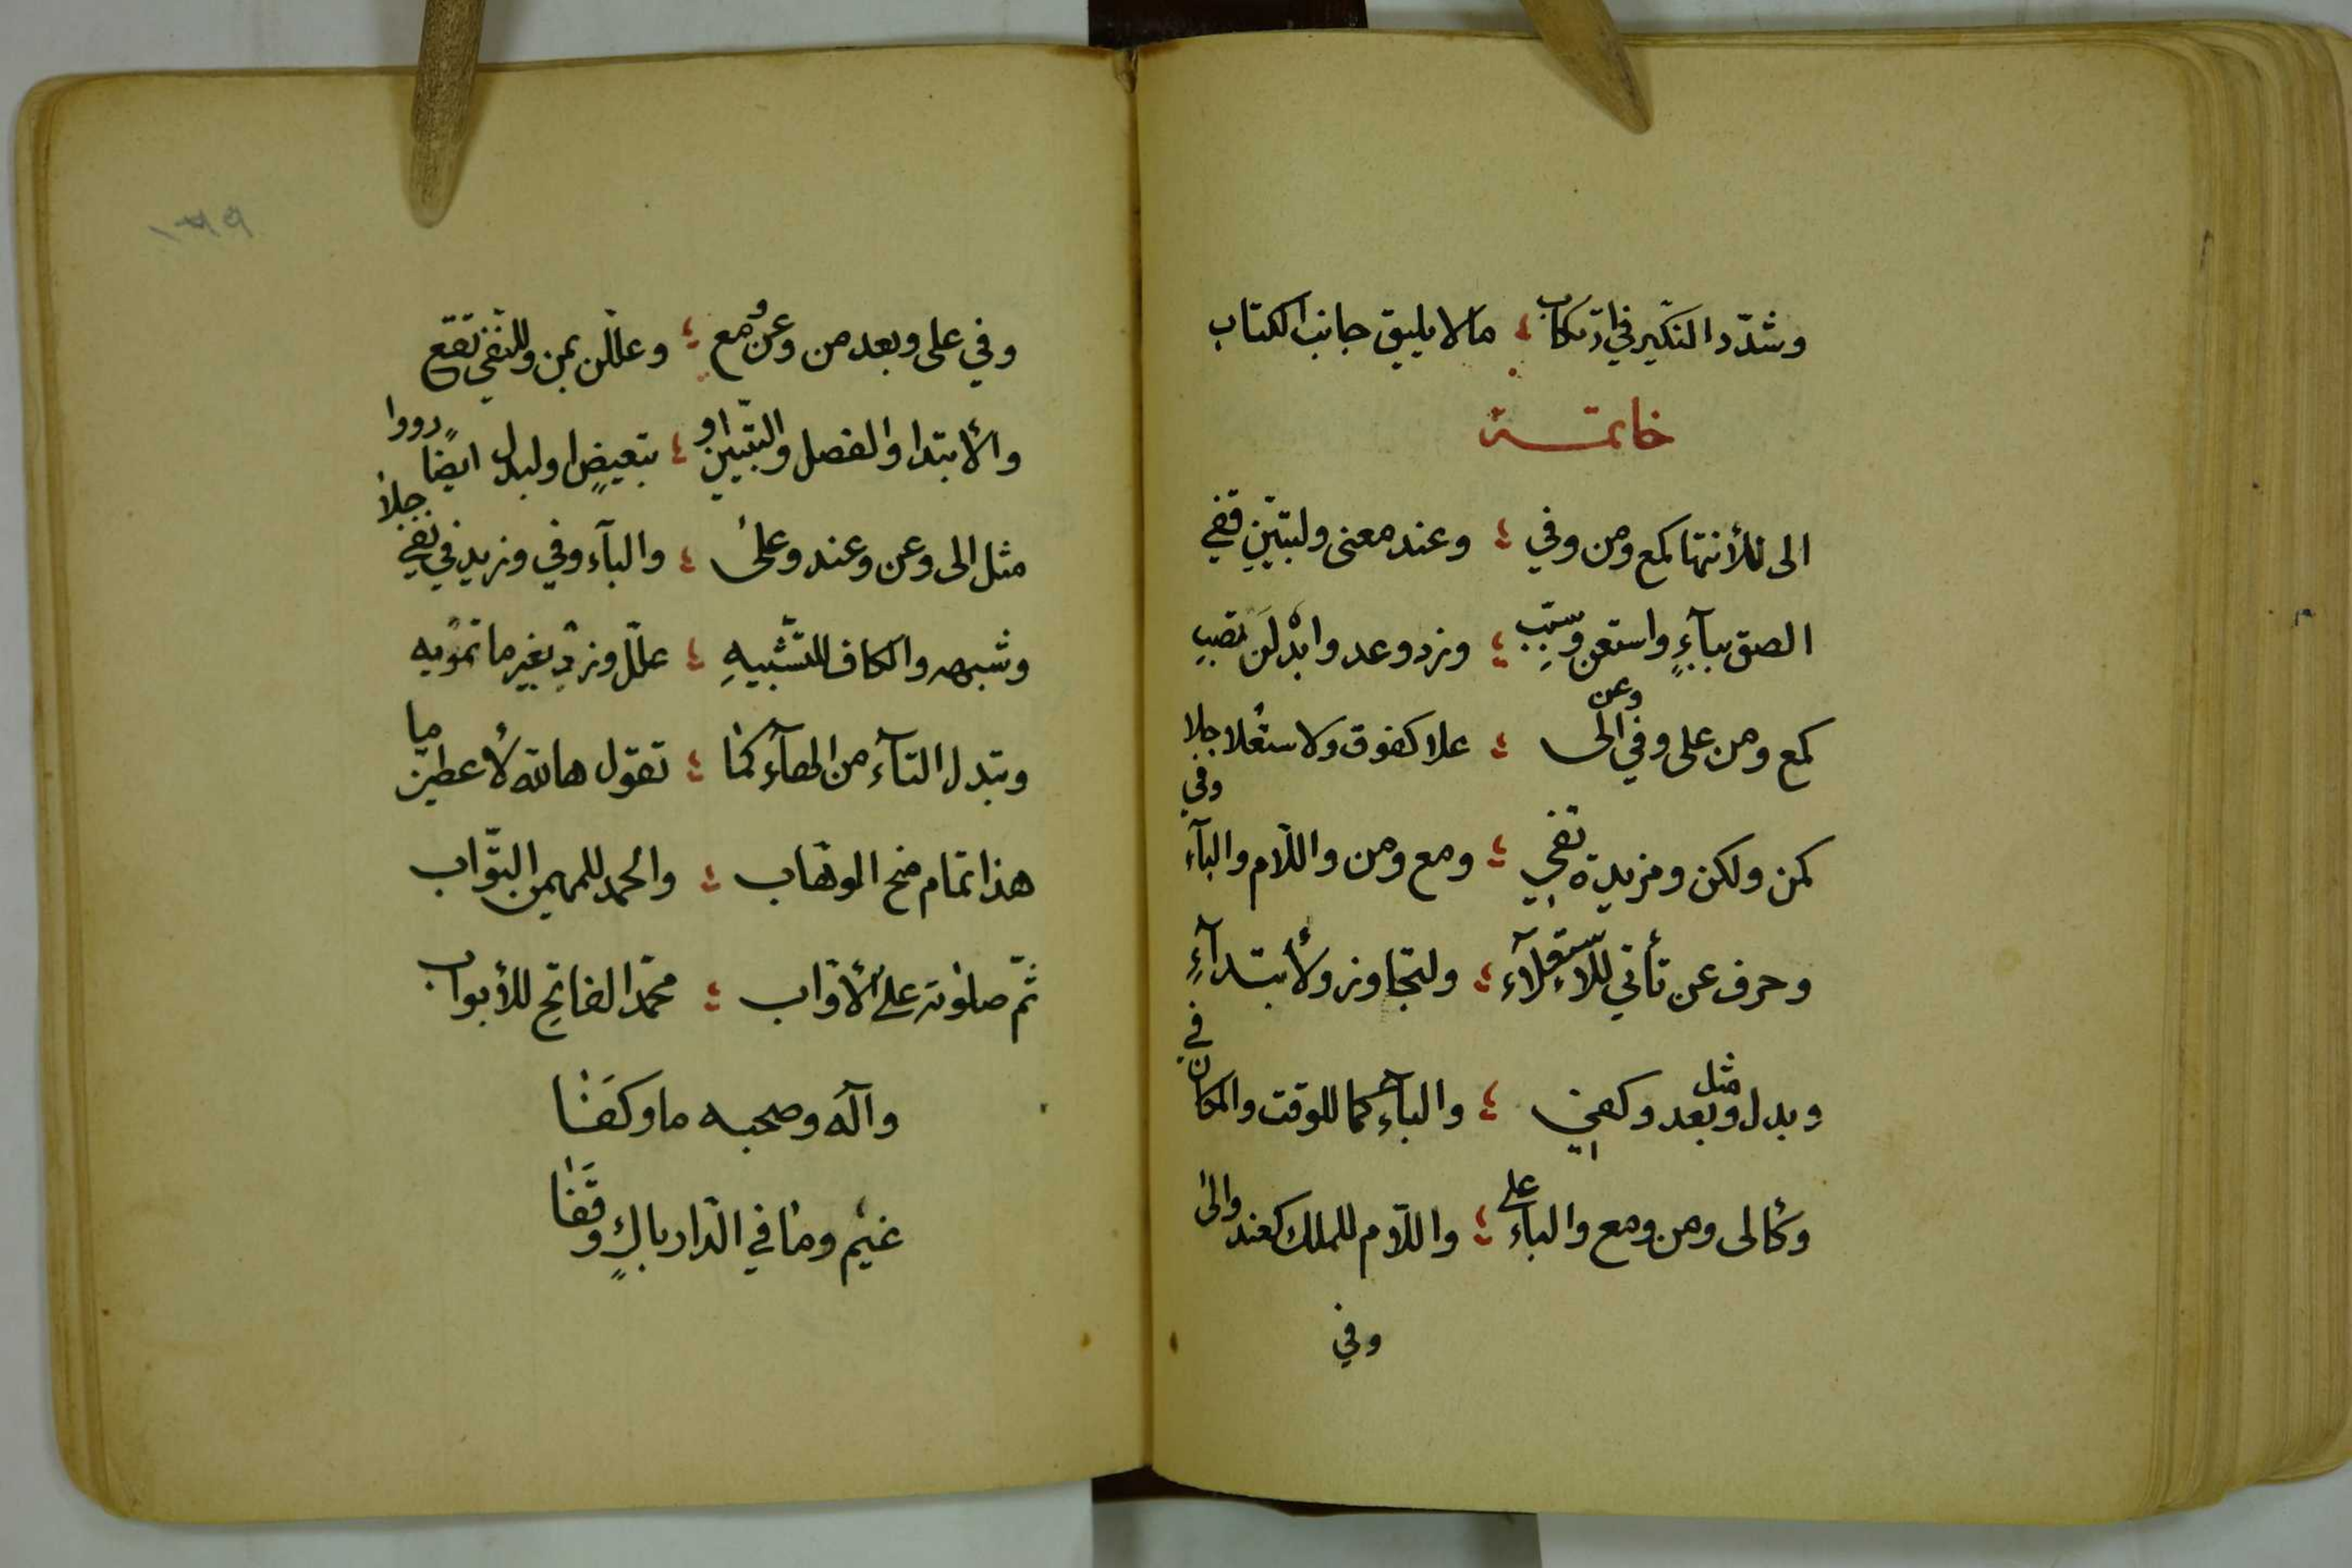 وشدّد النكير في ارتكاب ؛ مالا يليق جانب الكتاب
خاتمة
الى للأنتها كمع ومن وفي ؛ وعند معنى ولتبيّنٍ قفي
الصق ببآءٍ واستعن وسبّبِ ؛ وزد وعد وابدلَن تصبِ
كمع ومن على وفي وعن الى ؛ علا كفوق ولاستعلا جلا
كمن ولكن ومزيدة تفي ؛ ومع ومن واللّام والبآء وفي
وحرف عن تأتي للاستعلآء ؛ ولتجاوز ولأبتدآءٍ
وبدل وبعد مثل وكفي ؛ والبآء كما للوقت والمكان في
وكألى ومن ومع والبآء على ؛ واللّام للملك كعند والى
وفي
وفي على وبعد من وعن ومع ؛ وعلّلن بمن وللنّفي تقع
والأبتدا والفصل والتّبيين او ؛ بتعيضٍ اولبدل ايضًا رووا
مثل الى وعن وعند وعلى ؛ والبآء وفي وزيد في نفي جلا
وشبهه والكاف للتّشبيهِ ؛ علّل وزد بغير ما تمويه
وتبدل التآء من الهآء كما ؛ تقول هالله لأعطينّ ما
هذا تمام منح الوهّاب ؛ والحمد للمهيمن التّواب
ثمّ صلوته على الأوّاب ؛ محمّد الفاتح للأبواب
وآله وصحبه ما وكفا
غيم وما في الدّار باكٍ وقفا